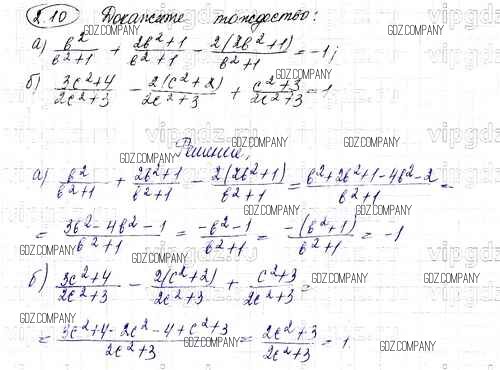 2.10 Докажите тождество:
а) b²/(b²+1) + (2b²+1)/(b²+1) - 2(2b²+1)/(b²+1) = -1;
б) (3c²+4)/(2c²+3) - 2(c²+2)/(2c²+3) + (c²+3)/(2c²+3) = 1
Решение.
а) b²/(b²+1) + (2b²+1)/(b²+1) - 2(2b²+1)/(b²+1) = (b²+2b²+1-4b²-2)/(b²+1) =
= (3b²-4b²-1)/(b²+1) = (-b²-1)/(b²+1) = -(b²+1)/(b²+1) = -1
б) (3c²+4)/(2c²+3) - 2(c²+2)/(2c²+3) + (c²+3)/(2c²+3) =
= (3c²+4-2c²-4+c²+3)/(2c²+3) = (2c²+3)/(2c²+3) = 1